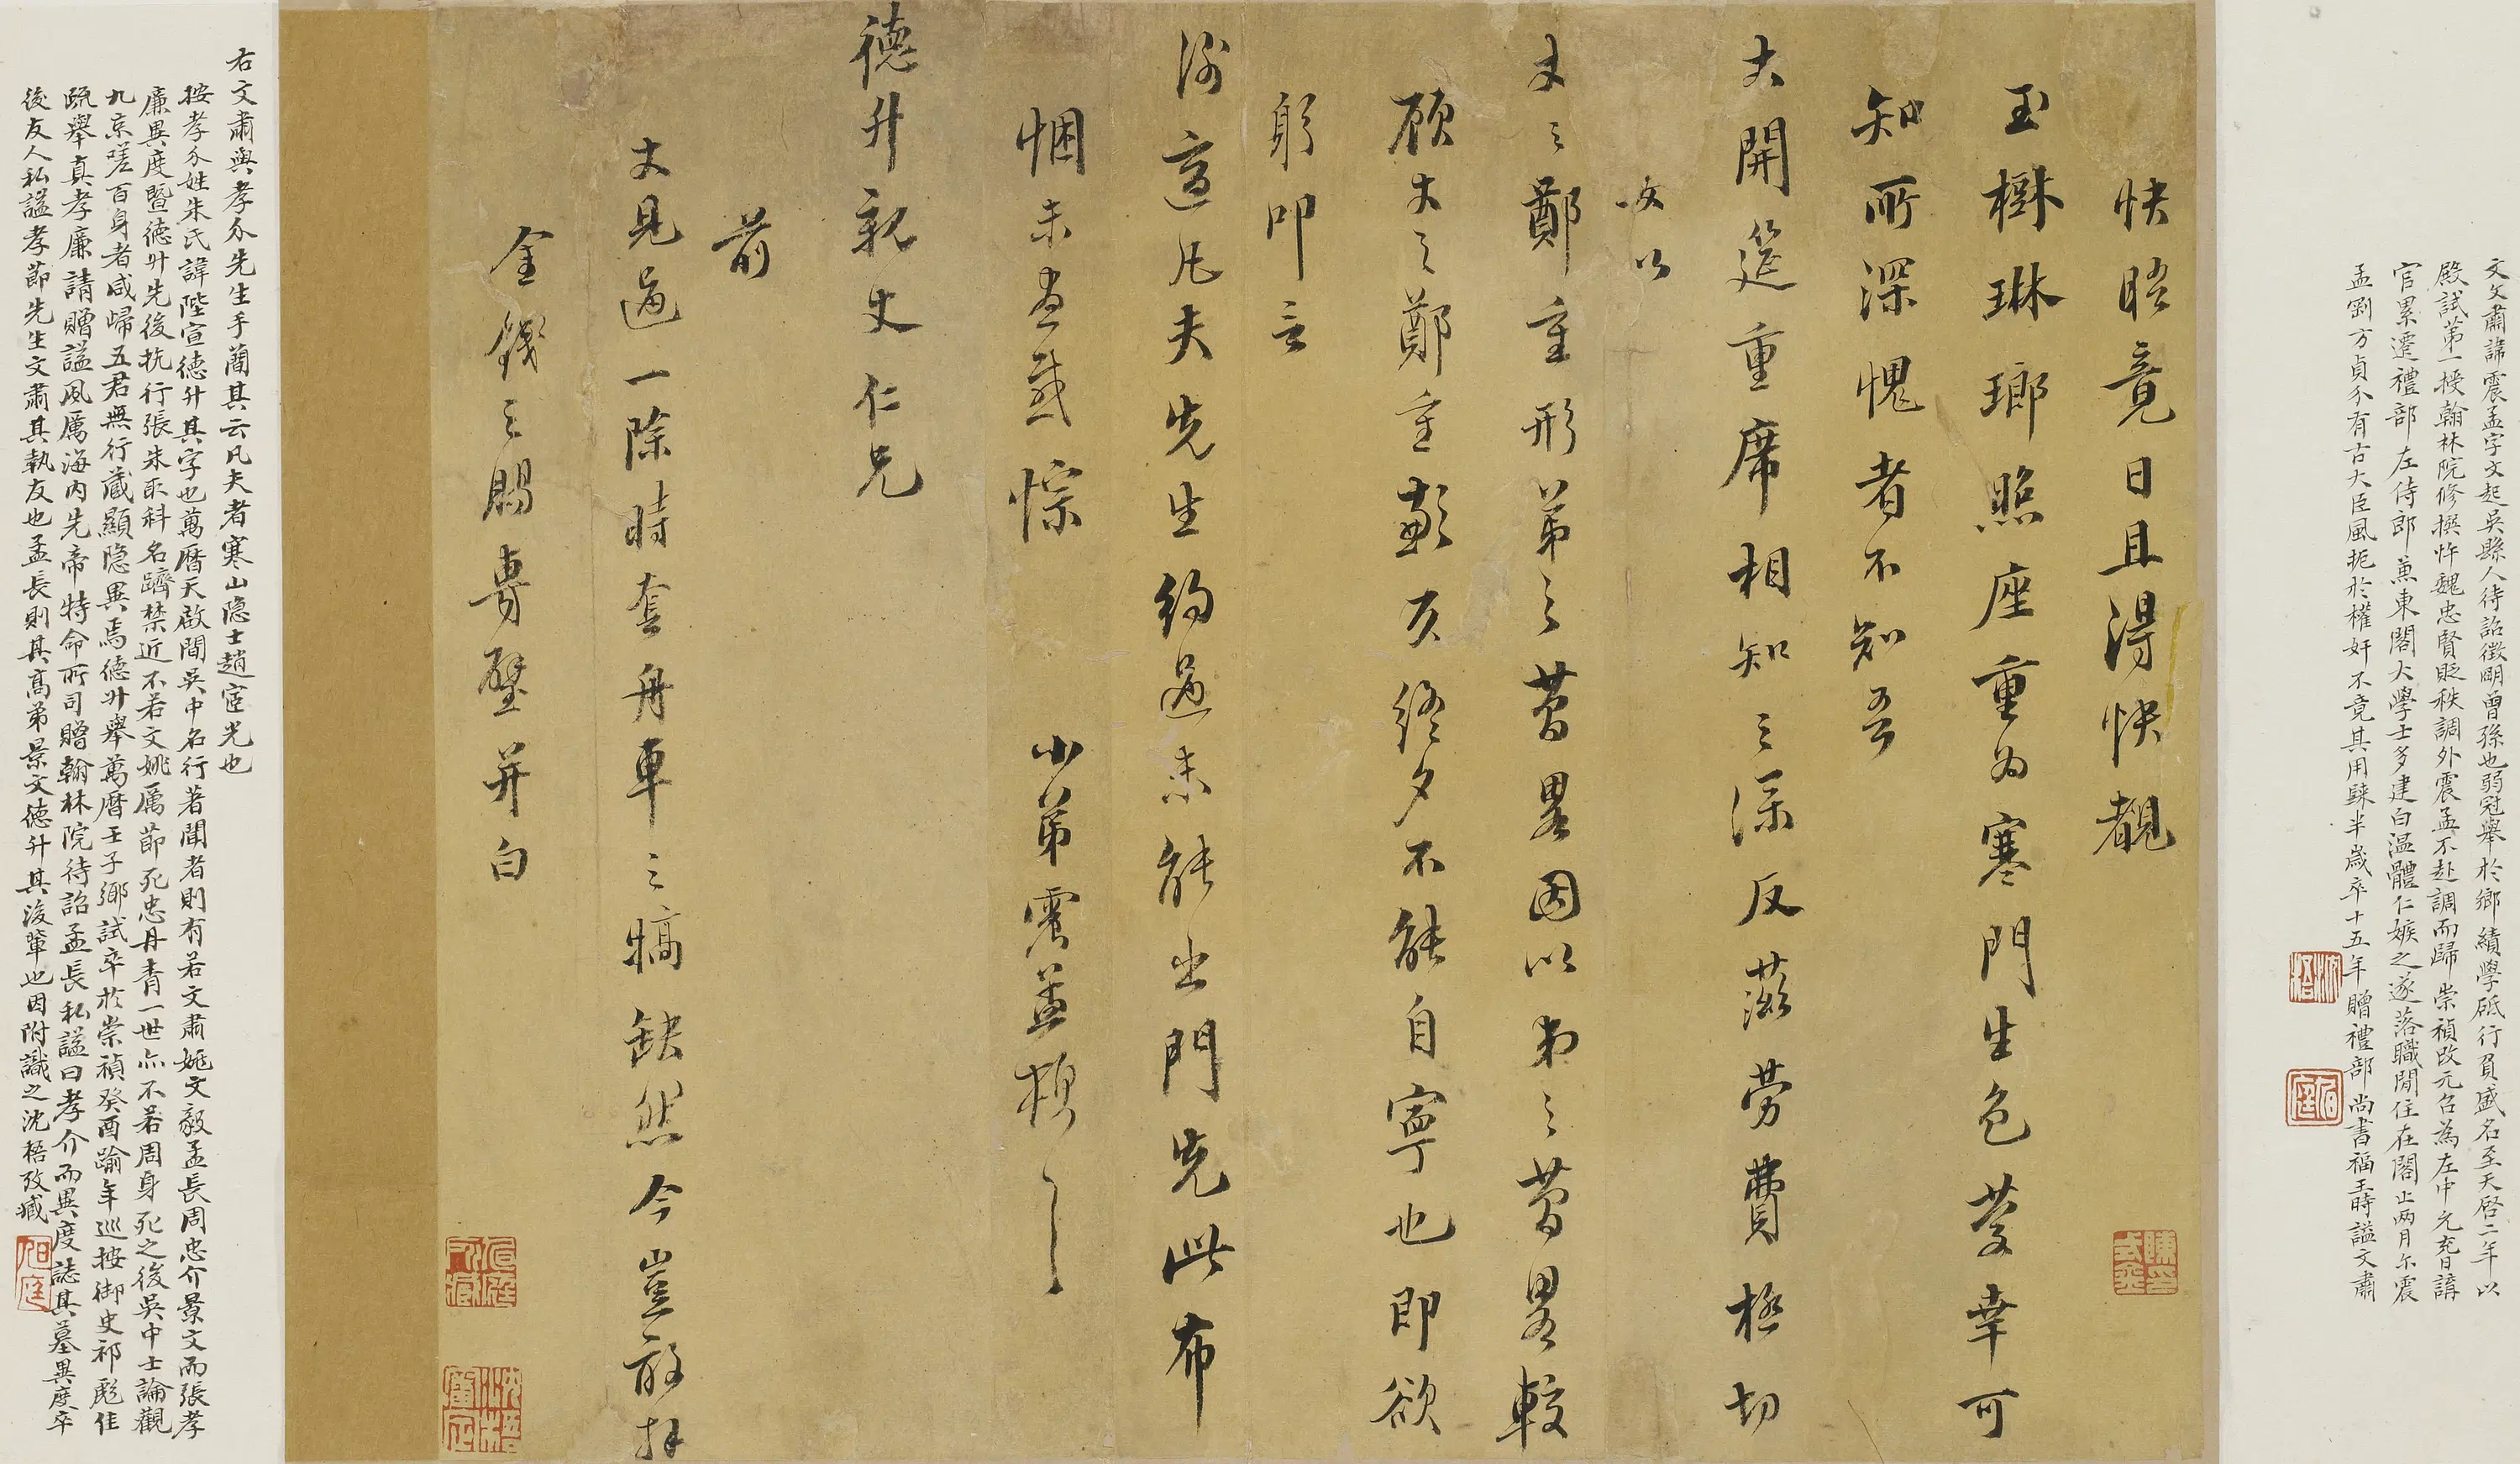 文文肅諱震孟字文起吳縣人待詔徵明曾孫也弱冠舉於鄉績學砥行負盛名至天啓二年以
殿試第一授翰林院修撰忤魏忠賢貶秩調外震孟不赴調而歸崇禎改元召為左中允充日講
官累遷禮部左侍郎兼東閣大學士多建白溫體仁嫉之遂落職閒住在閣止兩月尔震
孟剛方貞介有古大臣風扼於權奸不竟其用歸半歲卒十五年贈禮部尚書福王時謚文肅
快晤竟日且得快覩
玉樹琳瑯照座重為寒門生色榮幸可
知所深愧者不知吾
丈開筵重席相知之深反滋勞費極切
歉以
丈之鄭重形弟之草畧因以弟之草畧較
顧丈之鄭重歉亥終夕不能自寧也即欲
躬叩言
謝適凡夫先生約過未能出門先此布
悃未盡感悰
小弟震孟頓
德升親丈仁兄
前
丈見過一除時套舟車之犒缺然今豈敢拜
金錢之賜專璧并白
右文肅與孝介先生手蕳其云凡夫者寒山隐士趙宧光也
按孝介姓朱氏諱陛宣德升其字也萬曆天啟間吳中名行著聞者則有若文肅姚文毅孟長周忠介景文而張孝
廉異度暨德升先後抗行張朱取科名躋禁近不若文姚厲節死忠丹青一世亦不若周身死之後吳中士論觀
九京嗟百身者咸歸五君無行藏顯隐異焉德升舉萬曆壬子鄉試卒於崇禎癸酉踰年巡按御史祁彪佳
疏舉真孝廉請贈謚風厲海內先帝特命所司贈翰林院待詔孟長私謚曰孝介而異度誌其墓異度卒
後友人私謚孝節先生文肅其執友也孟長則其高弟景文德升其後輩也因附識之沈梧攷藏